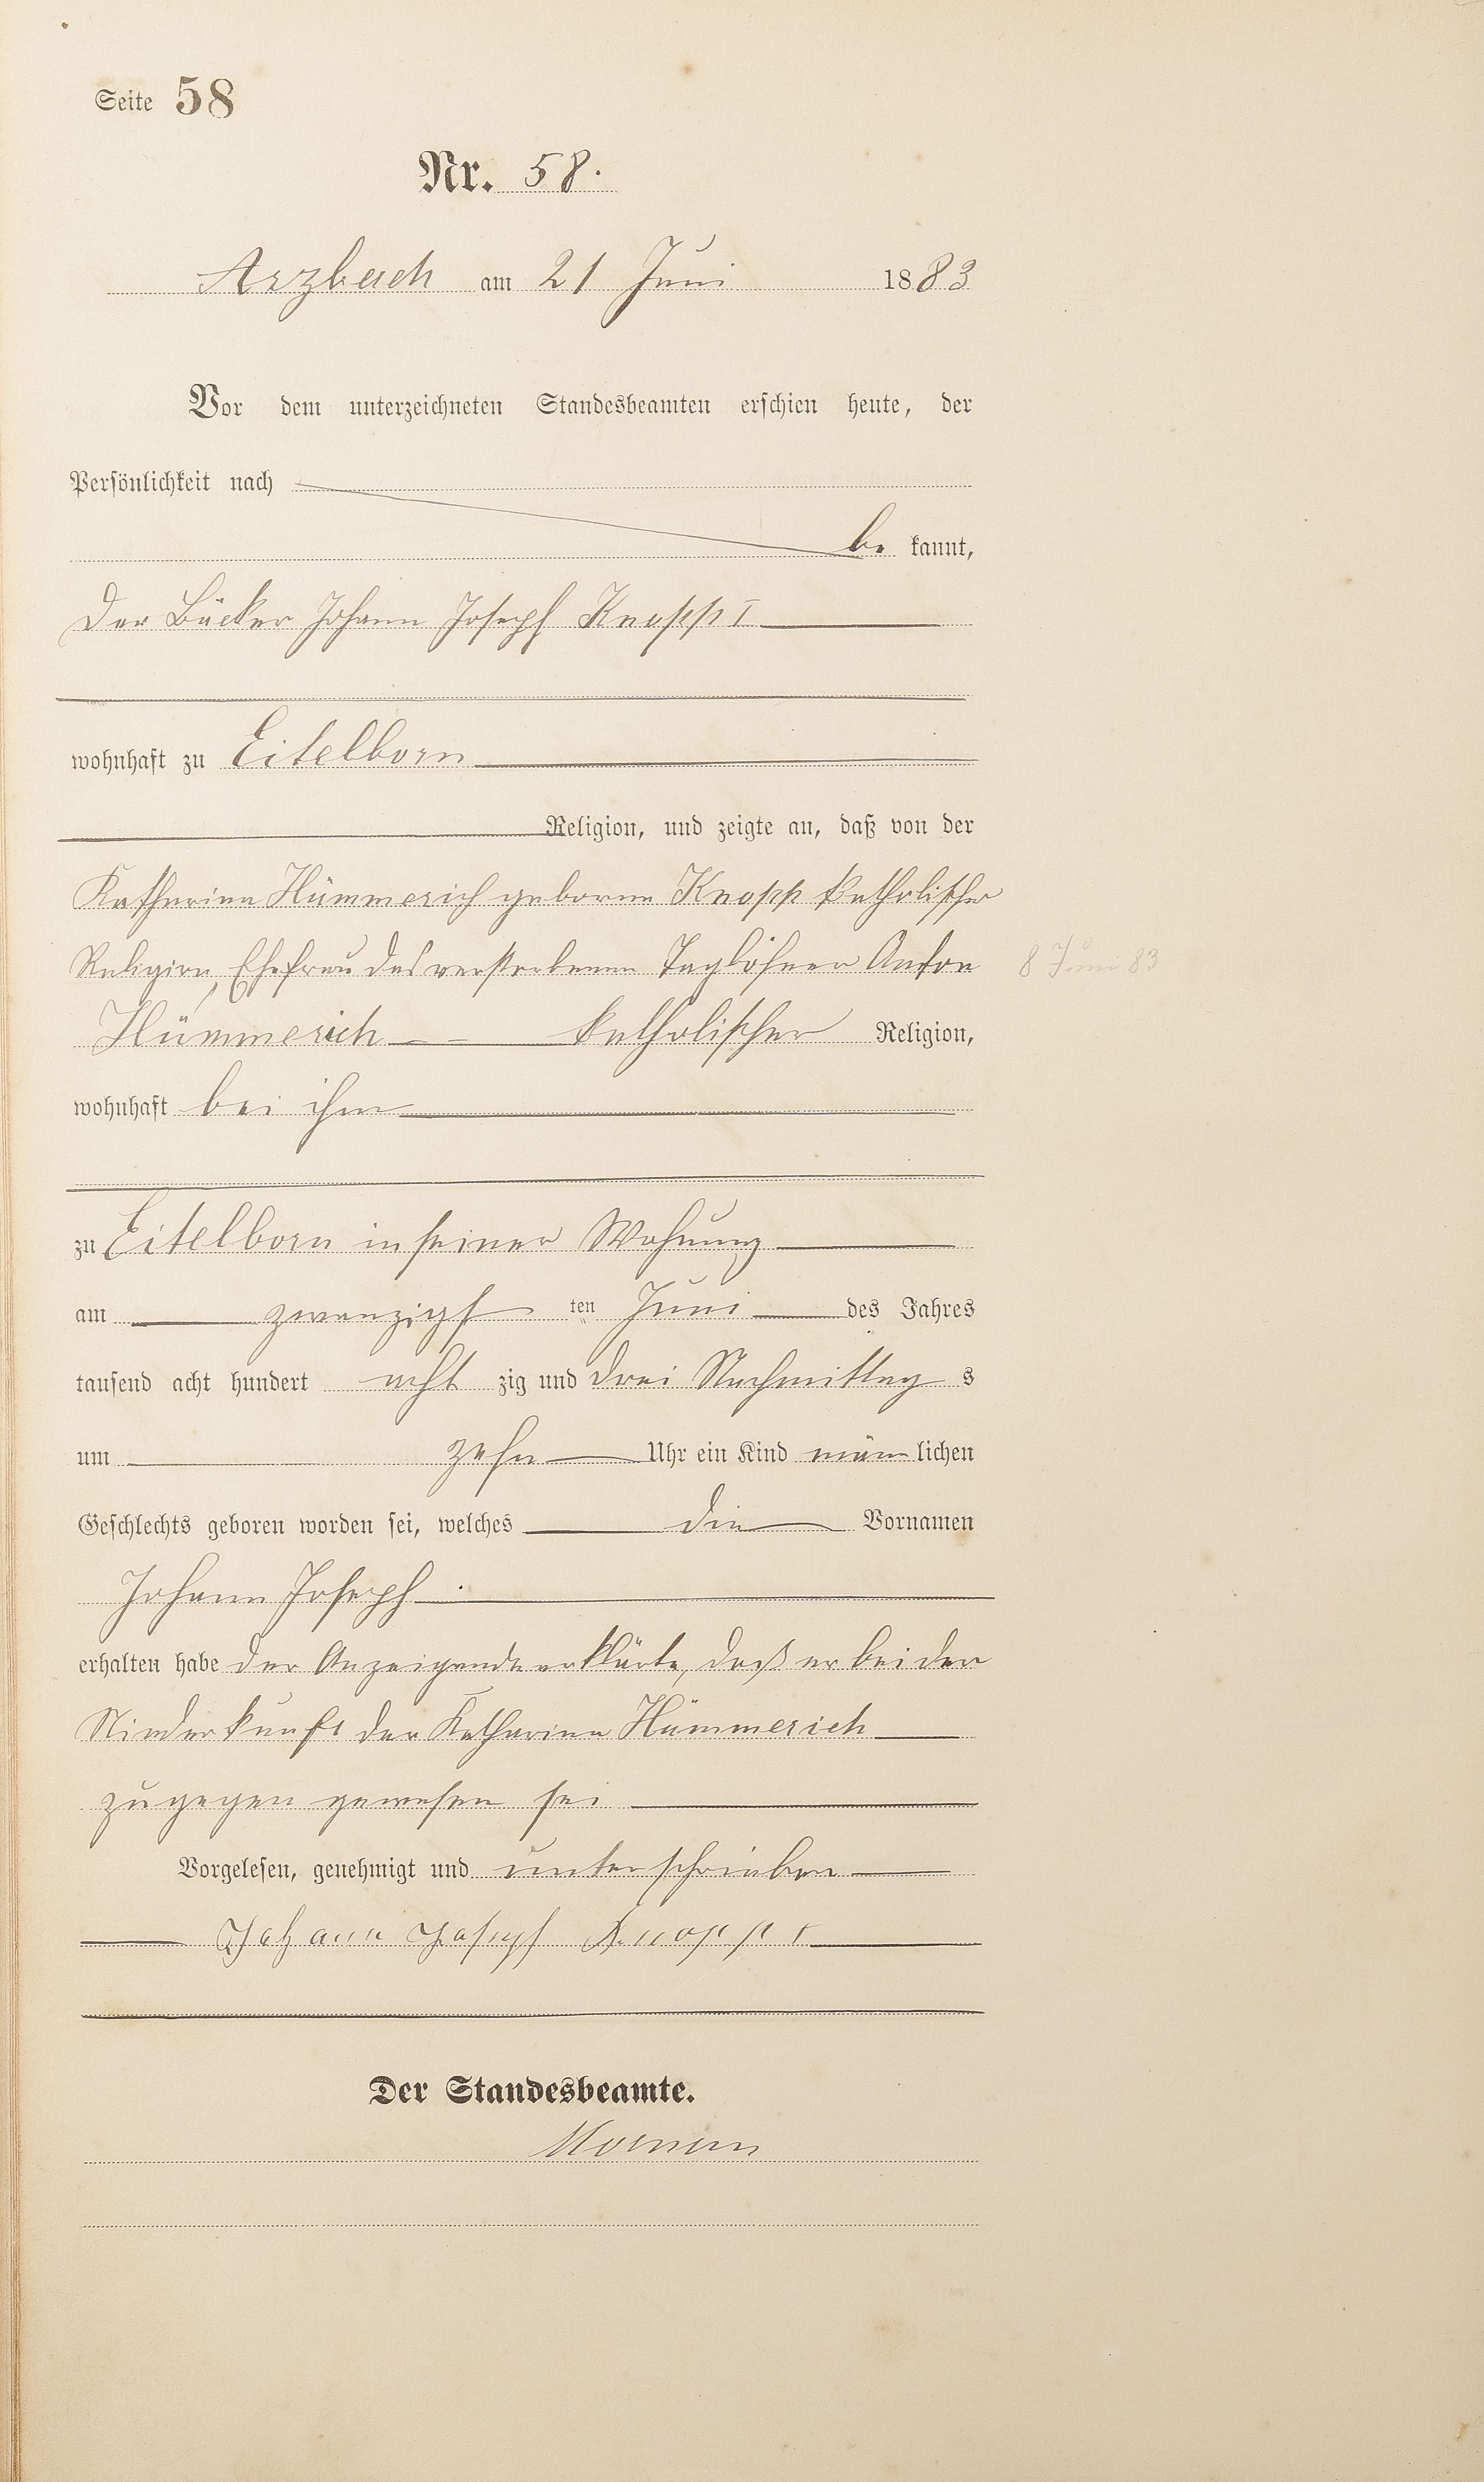 Seite 58
Nr. 58.
Arzbach am 21 Juni 1883
Vor dem unterzeichneten Standesbeamten erschien heute, der
Persönlichkeit nach
be kannt,
der Bäcker Johann Joseph Knopp I
wohnhaft zu Eitelborn
Religion, und zeigte an, daß von der
Katharina Hümmerich geborne Knopp katholischer
Religion, Ehefrau des verstorbenen Taglöhner Anton
8 Juni 83
Hümmerich katholischer Religion,
wohnhaft bei ihm
zu Eitelborn in seiner Wohnung
am zwanzigs ten Juni des Jahres
tausend acht hundert acht zig und drei Nachmittag s
um zehn Uhr ein Kind män lichen
Geschlechts geboren worden sei, welches die Vornamen
Johann Joseph
erhalten habe der Anzeigende erklärte, daß er bei der
Niederkunft der Katharina Hümmerich
zugegen gewesen sei
Vorgelesen, genehmigt und unterschrieben
Johann Joseph Knopp I
Der Standesbeamte.